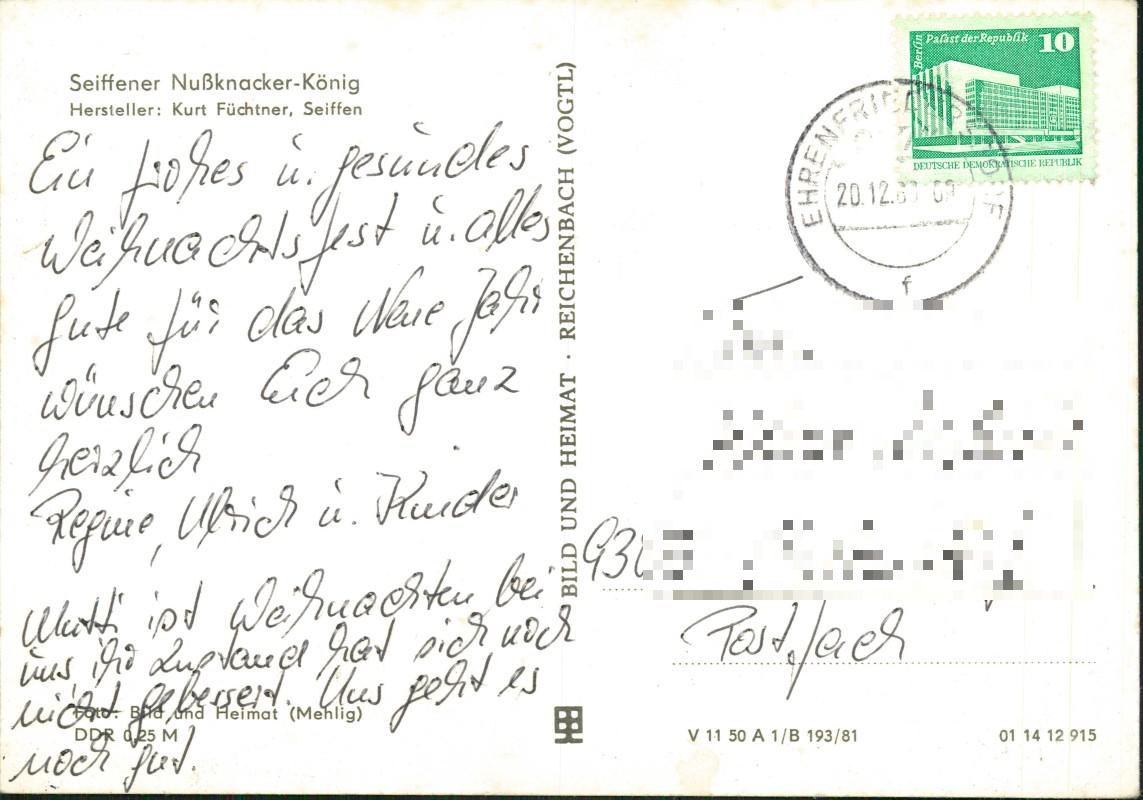 Seiffener Nußknacker-König
Hersteller: Kurt Füchtner, Seiffen
Ein frohes u. gesundes
Weihnachtsfest u. alles
gute für das Neue Jahr
wünschen Euch ganz
herzlich
Regine, Ulrich u. Kinder
Mutti ist Weihnachten bei
uns ihr Zustand hat sich noch
nicht gebessert. Uns geht es
noch gut.
Foto: Bild und Heimat (Mehlig)
DDR 0,25 M
BILD UND HEIMAT · REICHENBACH (VOGTL)
Berlin
Palast der Republik 10
DEUTSCHE DEMOKRATISCHE REPUBLIK
EHRENFRIEDERSDORF
20.12.
f
Postfach
V 11 50 A 1/B 193/81
01 14 12 915